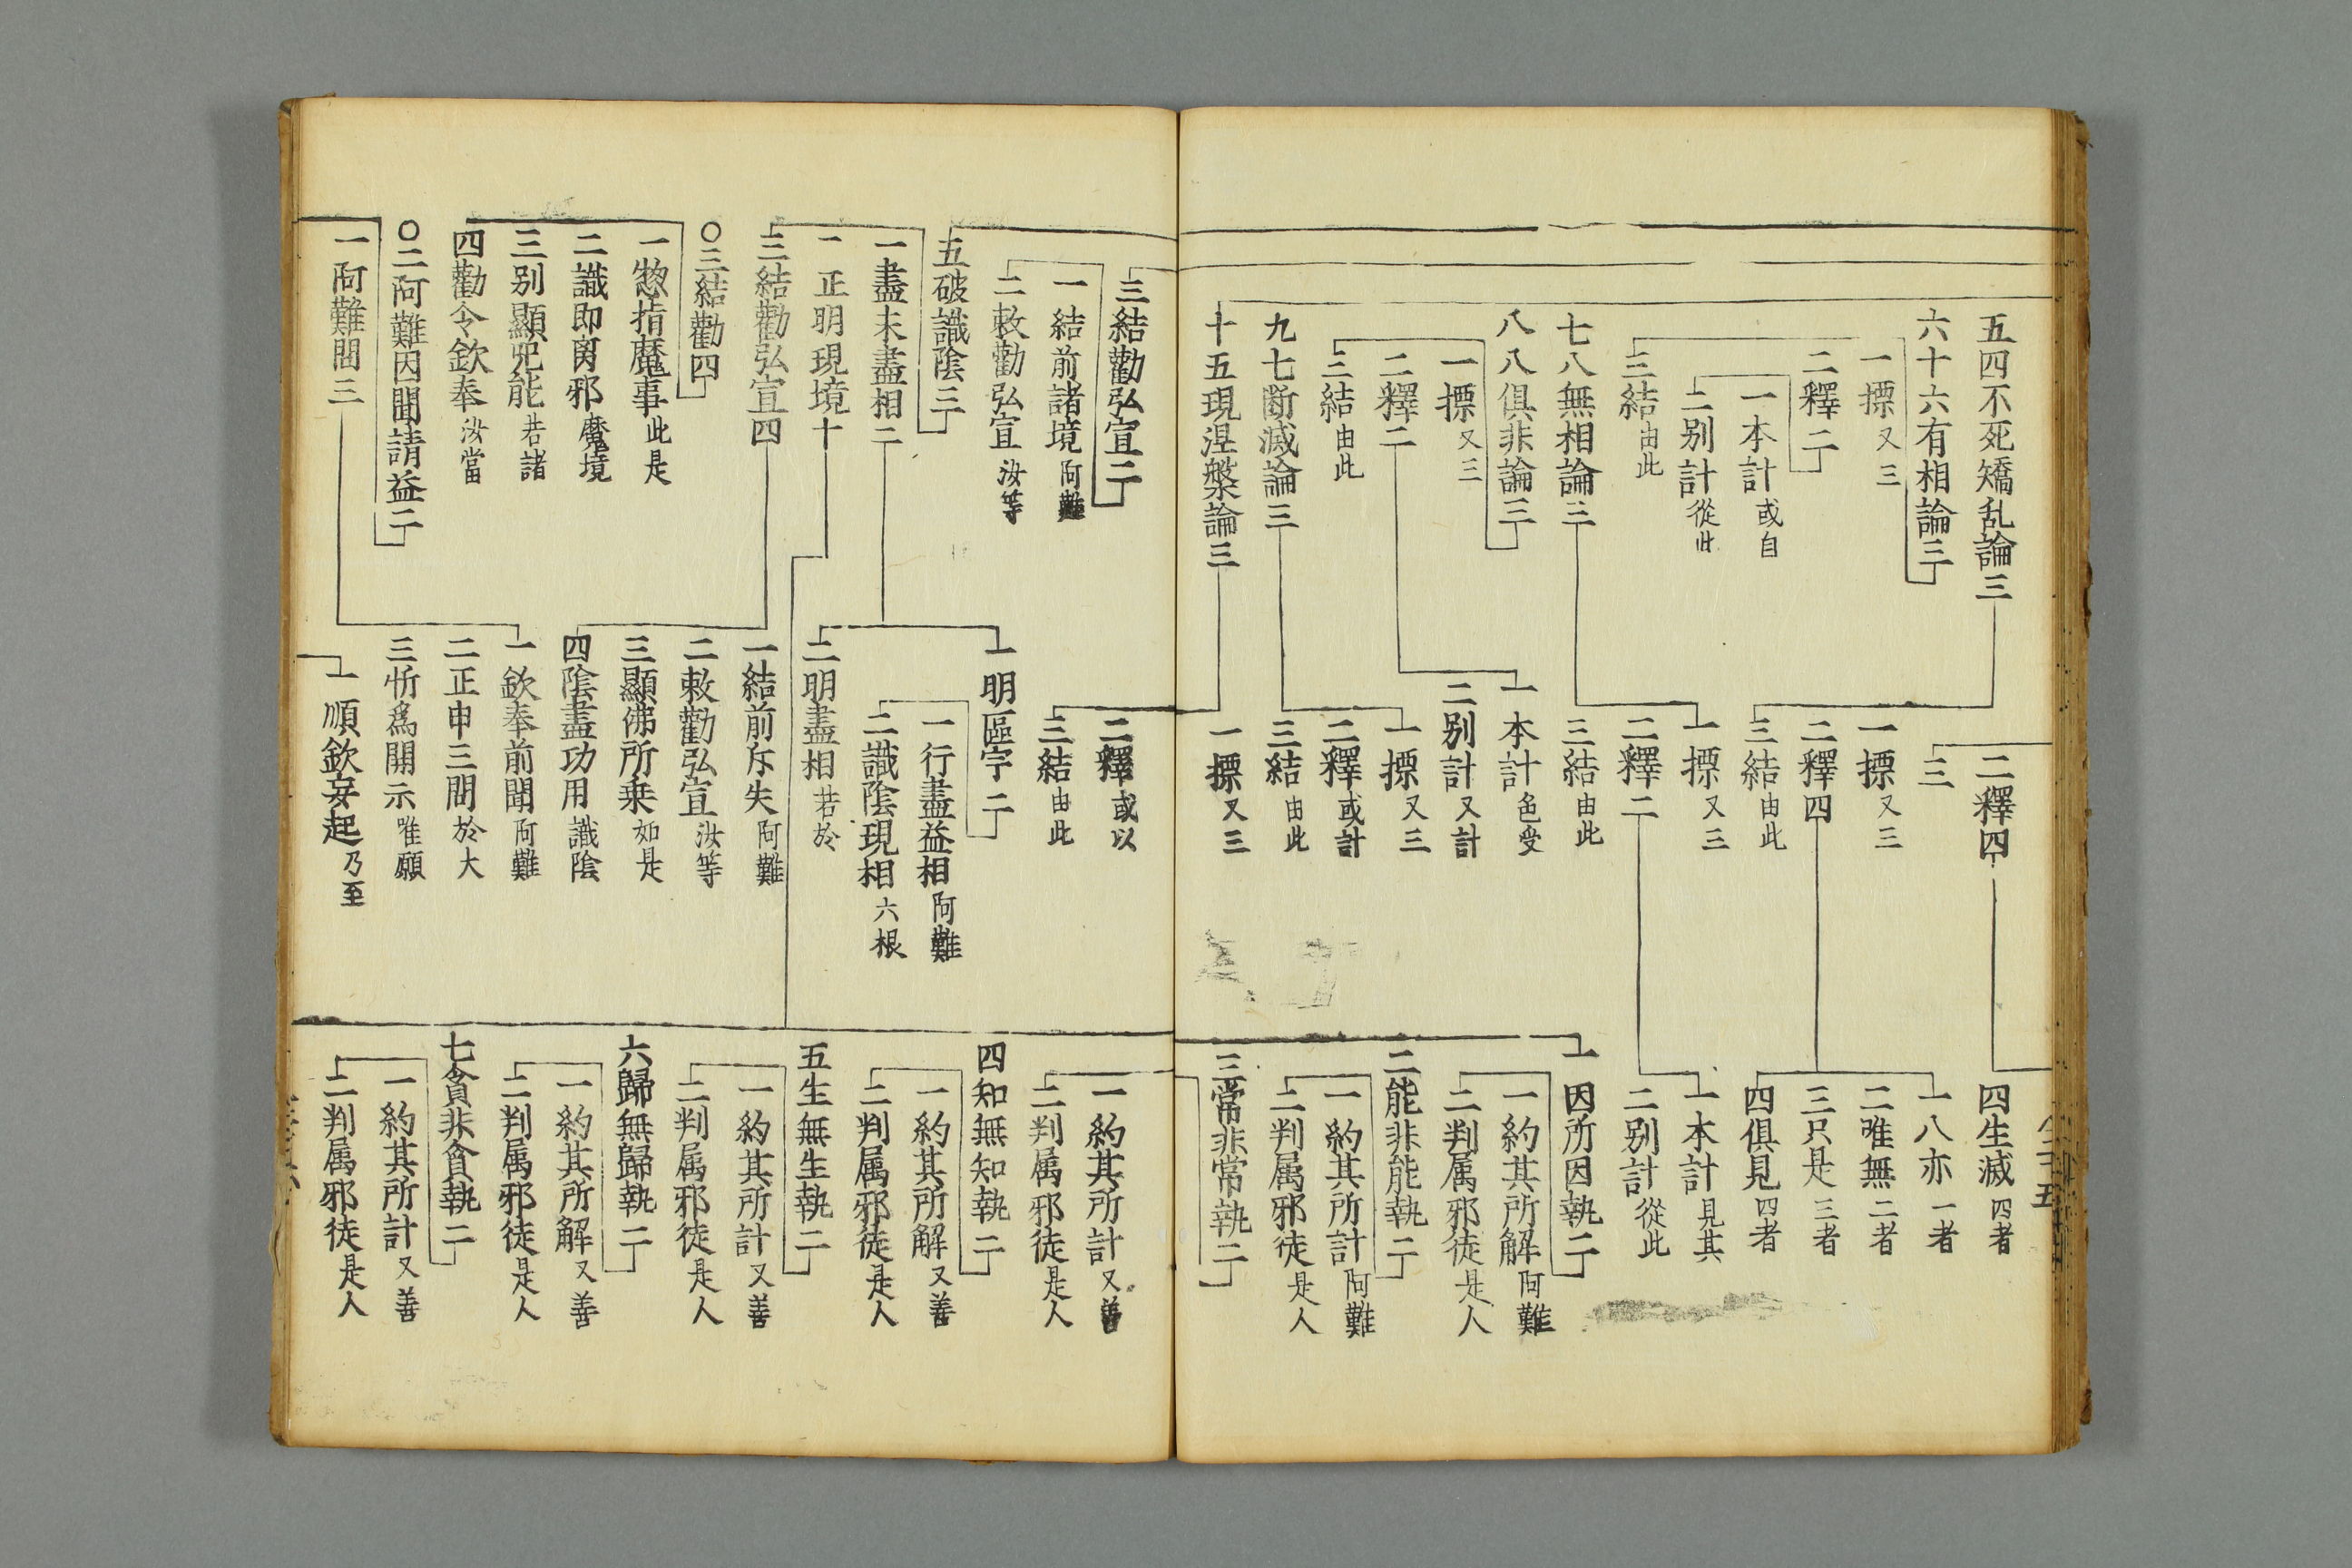 五四不死矯乱論三
六十六有相論三
一摽又三
二釋二
一本計或自
二别計從此
三結由此
七八無相論三
八八俱非論三
一摽又三
二釋二
三結由此
九七断滅論三
十五現涅槃論三
二釋四
三
一摽又三
二釋四
三結由此
一摽又三
二釋二
三結由此
一本計色受
二别計又計
一摽又三
二釋或計
三結由此
一摽又三
四生滅四者
一八亦一者
二唯無二者
三只是三者
四俱見四者
一本計見其
二别計從此
一因所因執二
一約其所解阿難
二判属邪徒是人
二能非能執二
一約其所計阿難
二判属邪徒是人
三常非常執二
三結勸弘宣二
一結前諸境阿難
二敕勸弘宣汝等
五破識陰三
一盡未盡相二
一正明現境十
三結勸弘宣四
〇三結勸四
一惣指魔事此是
二識即离邪魔境
三别顯咒能若諸
四勸令欽奉汝當
〇二阿難因聞請益二
一阿難問三
二釋或以
三結由此
一明區宇二
一行盡益相阿難
二識陰現相六根
二明盡相若於
一結前斥失阿難
二敕勸弘宣汝等
三顯佛所乗如是
四陰盡功用識陰
一欽奉前聞阿難
二正申三問於大
三忻爲開示唯願
一順欽妄起乃至
一約其所計又善
二判属邪徒是人
四知無知執二
一約其所解又善
二判属邪徒是人
五生無生執二
一約其所計又善
二判属邪徒是人
六歸無歸執二
一約其所解又善
二判属邪徒是人
七貪非貪執二
一約其所計又善
二判属邪徒是人